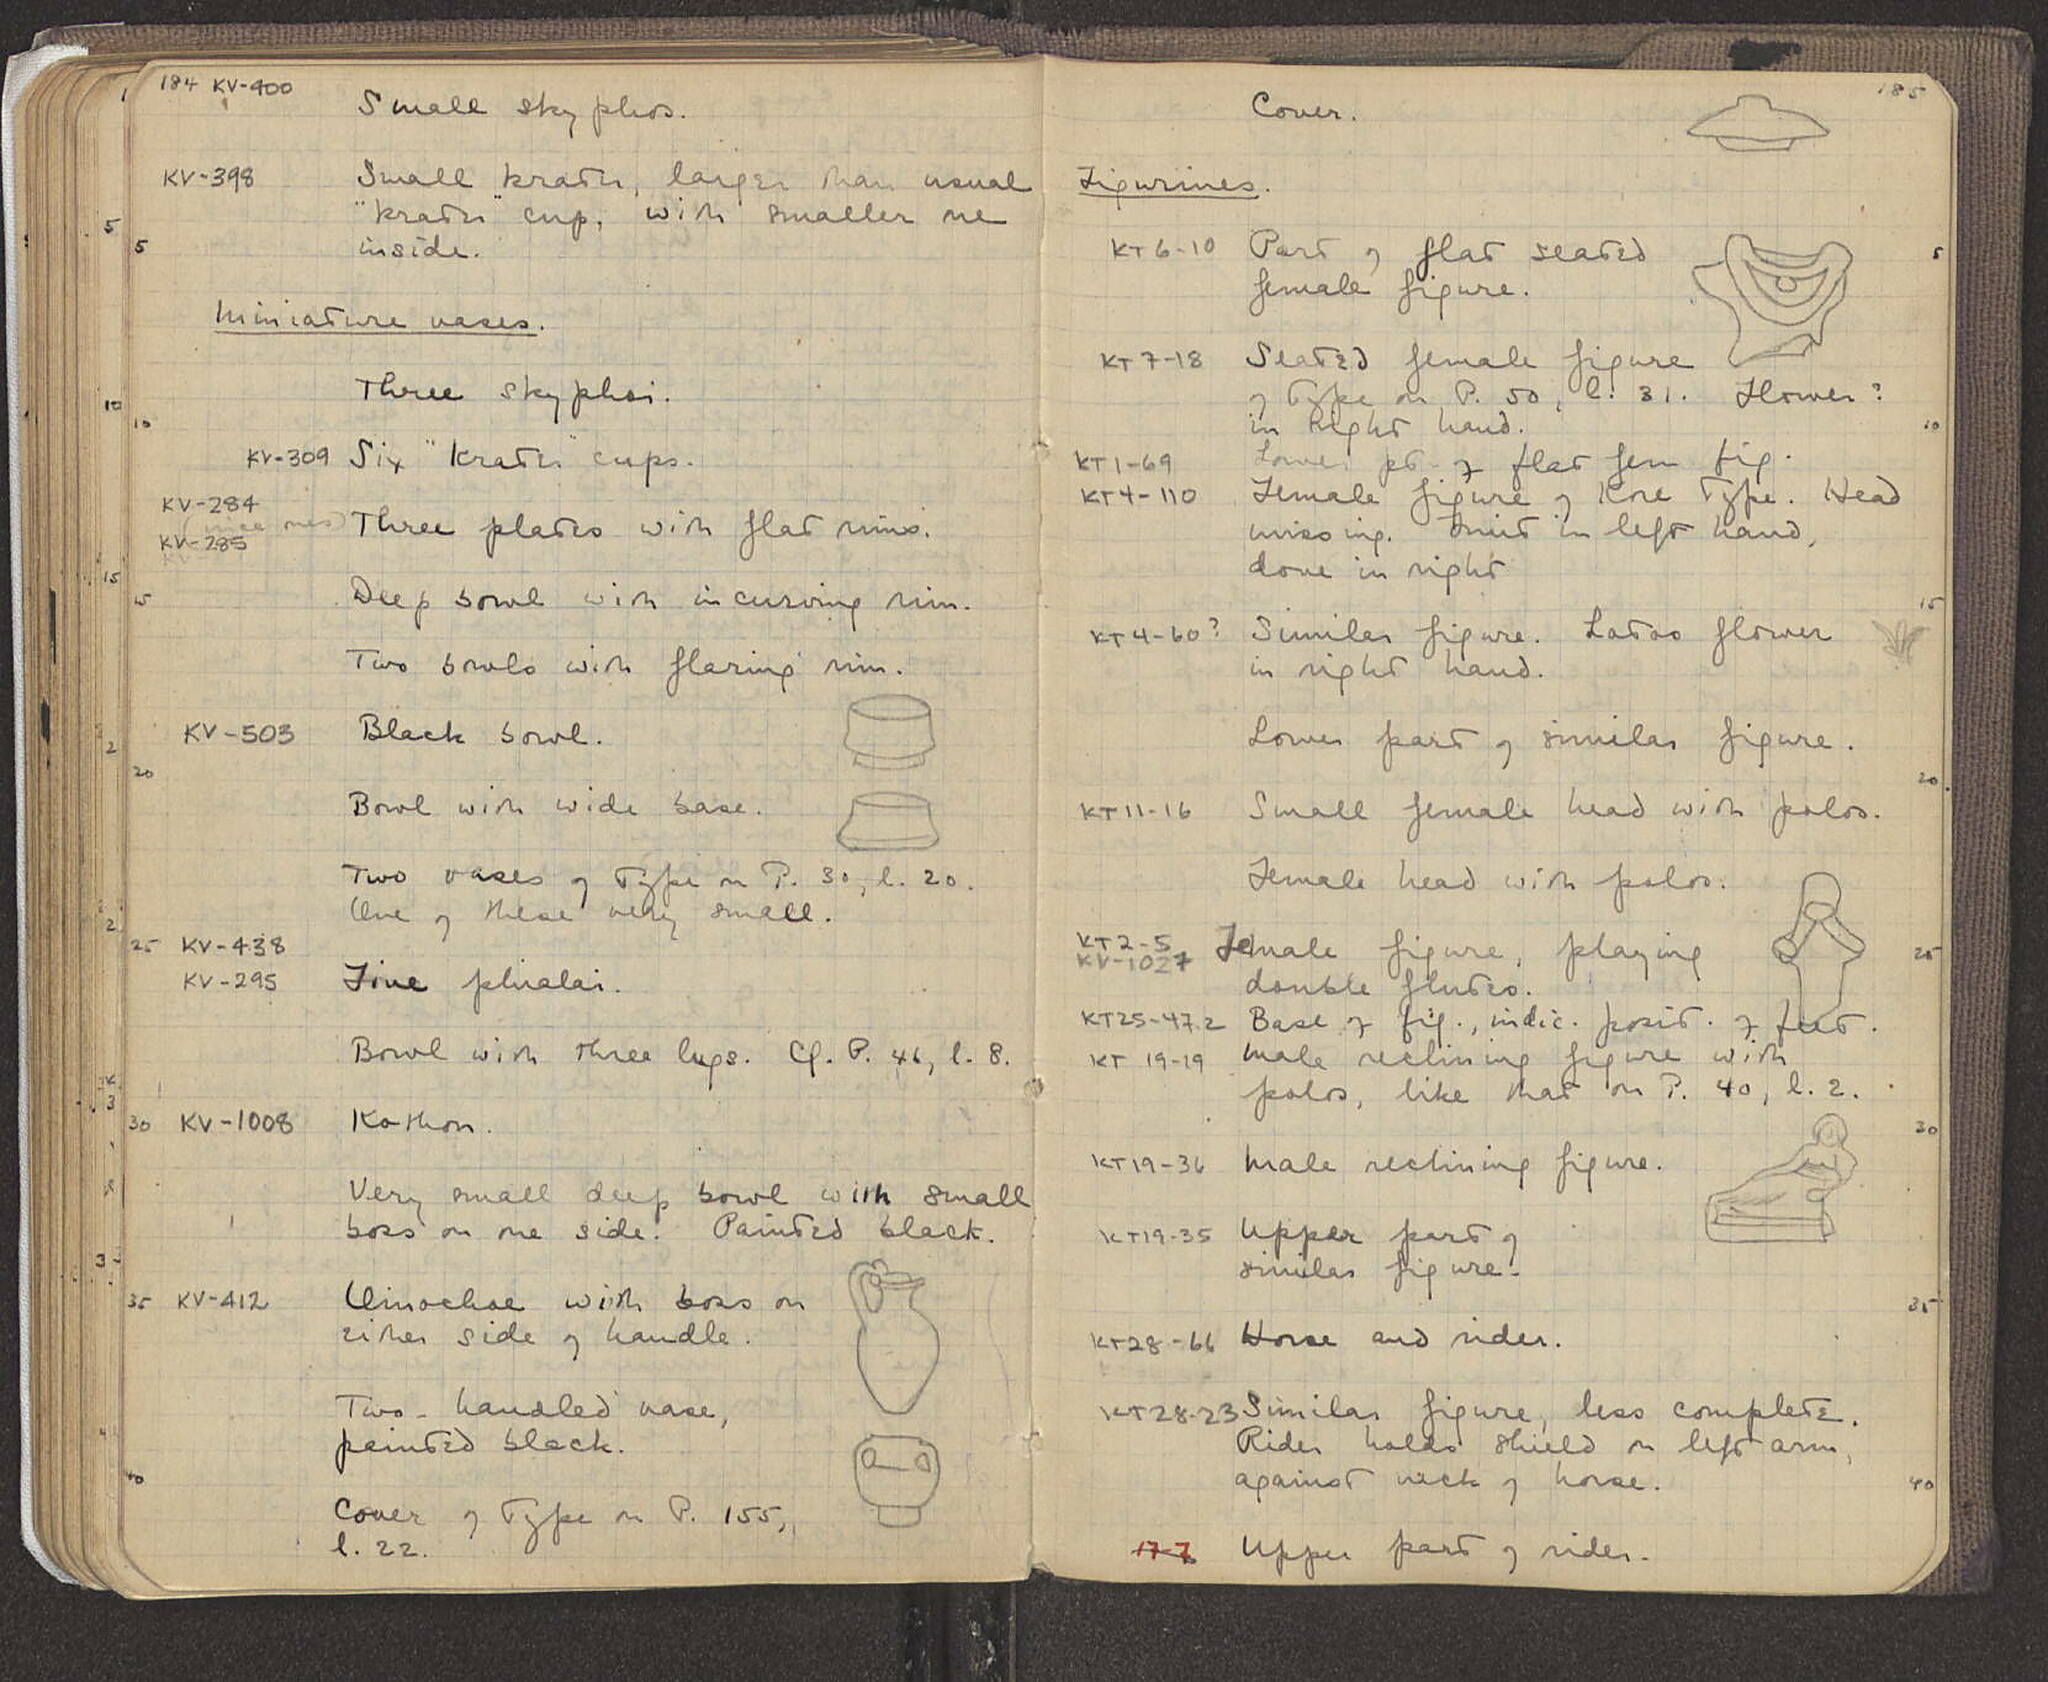 184 KV-400
Small skyphos.
KV-398 Small krater, larger than usual
"krater" cup, with smaller one
5 inside.
Miniature vases.
Three skyphoi.
10
KV-309 Six "krater" cups.
KV-284
Three plates with flat rims.
KV-285
15 Deep bowl with incurving rim.
Two bowls with flaring rim.
KV-503 Black bowl.
20
Bowl with wide base.
Two vases of type on P. 30, l. 20.
One of these very small.
25 KV-438
KV-295 Five phialai.
Bowl with three lugs. Cf. P. 46, l. 8.
30 KV-1008 Kothon.
Very small deep bowl with small
boss on one side. Painted black.
35 KV-412 Oinochoe with boss on
either side of handle.
Two-handled vase,
painted black.
40
Cover of type on P. 155,
l. 22.
185
Cover.
Figurines.
KT6-10 Part of flat seated 5
female figure.
KT7-18 Seated female figure
of type on P. 50, l. 31. Flower?
in right hand. 10
KT1-69 Lower pt. of flat fem fig.
KT4-110 Female figure of Kore type. Head
missing. Fruit in left hand,
dove in right
15
KT4-60? Similar figure. Lotos flower
in right hand.
Lower part of similar figure.
20
KT11-16 Small female head with polos.
Female head with polos.
KT2-5 Female figure, playing 25
KV-1027
double flutes.
KT25-47.2 Base of fig., indic. posit. of feet.
KT19-19 Male reclining figure with
polos, like that on P. 40, l. 2.
30
KT19-36 Male reclining figure.
KT19-35 Upper part of
similar figure.
35
KT28-66 Horse and rider.
KT28-23 Similar figure, less complete.
Rider holds shield on left arm,
against neck of horse. 40
17-7 Upper part of rider.